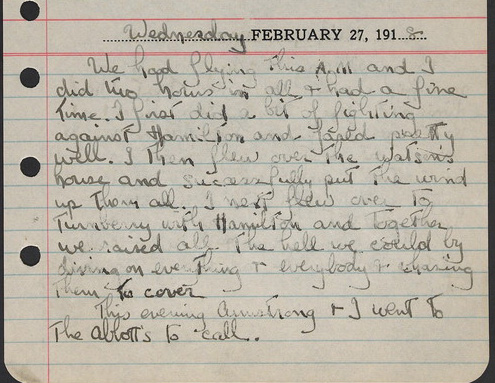 Wednesday FEBRUARY 27, 1918
We had flying this A.M. and I
did two hours in all + had a fine
time. I first did a bit of fighting
against Hamilton and fared pretty
well. I then flew over the Watson's
house and successfully put the wind
up them all. I next flew over to
Turnberry with Hamilton and together
we raised all the hell we could by
diving on everything + everybody + chasing
them to cover
This evening Armstrong + I went to
The Abbott's to call.